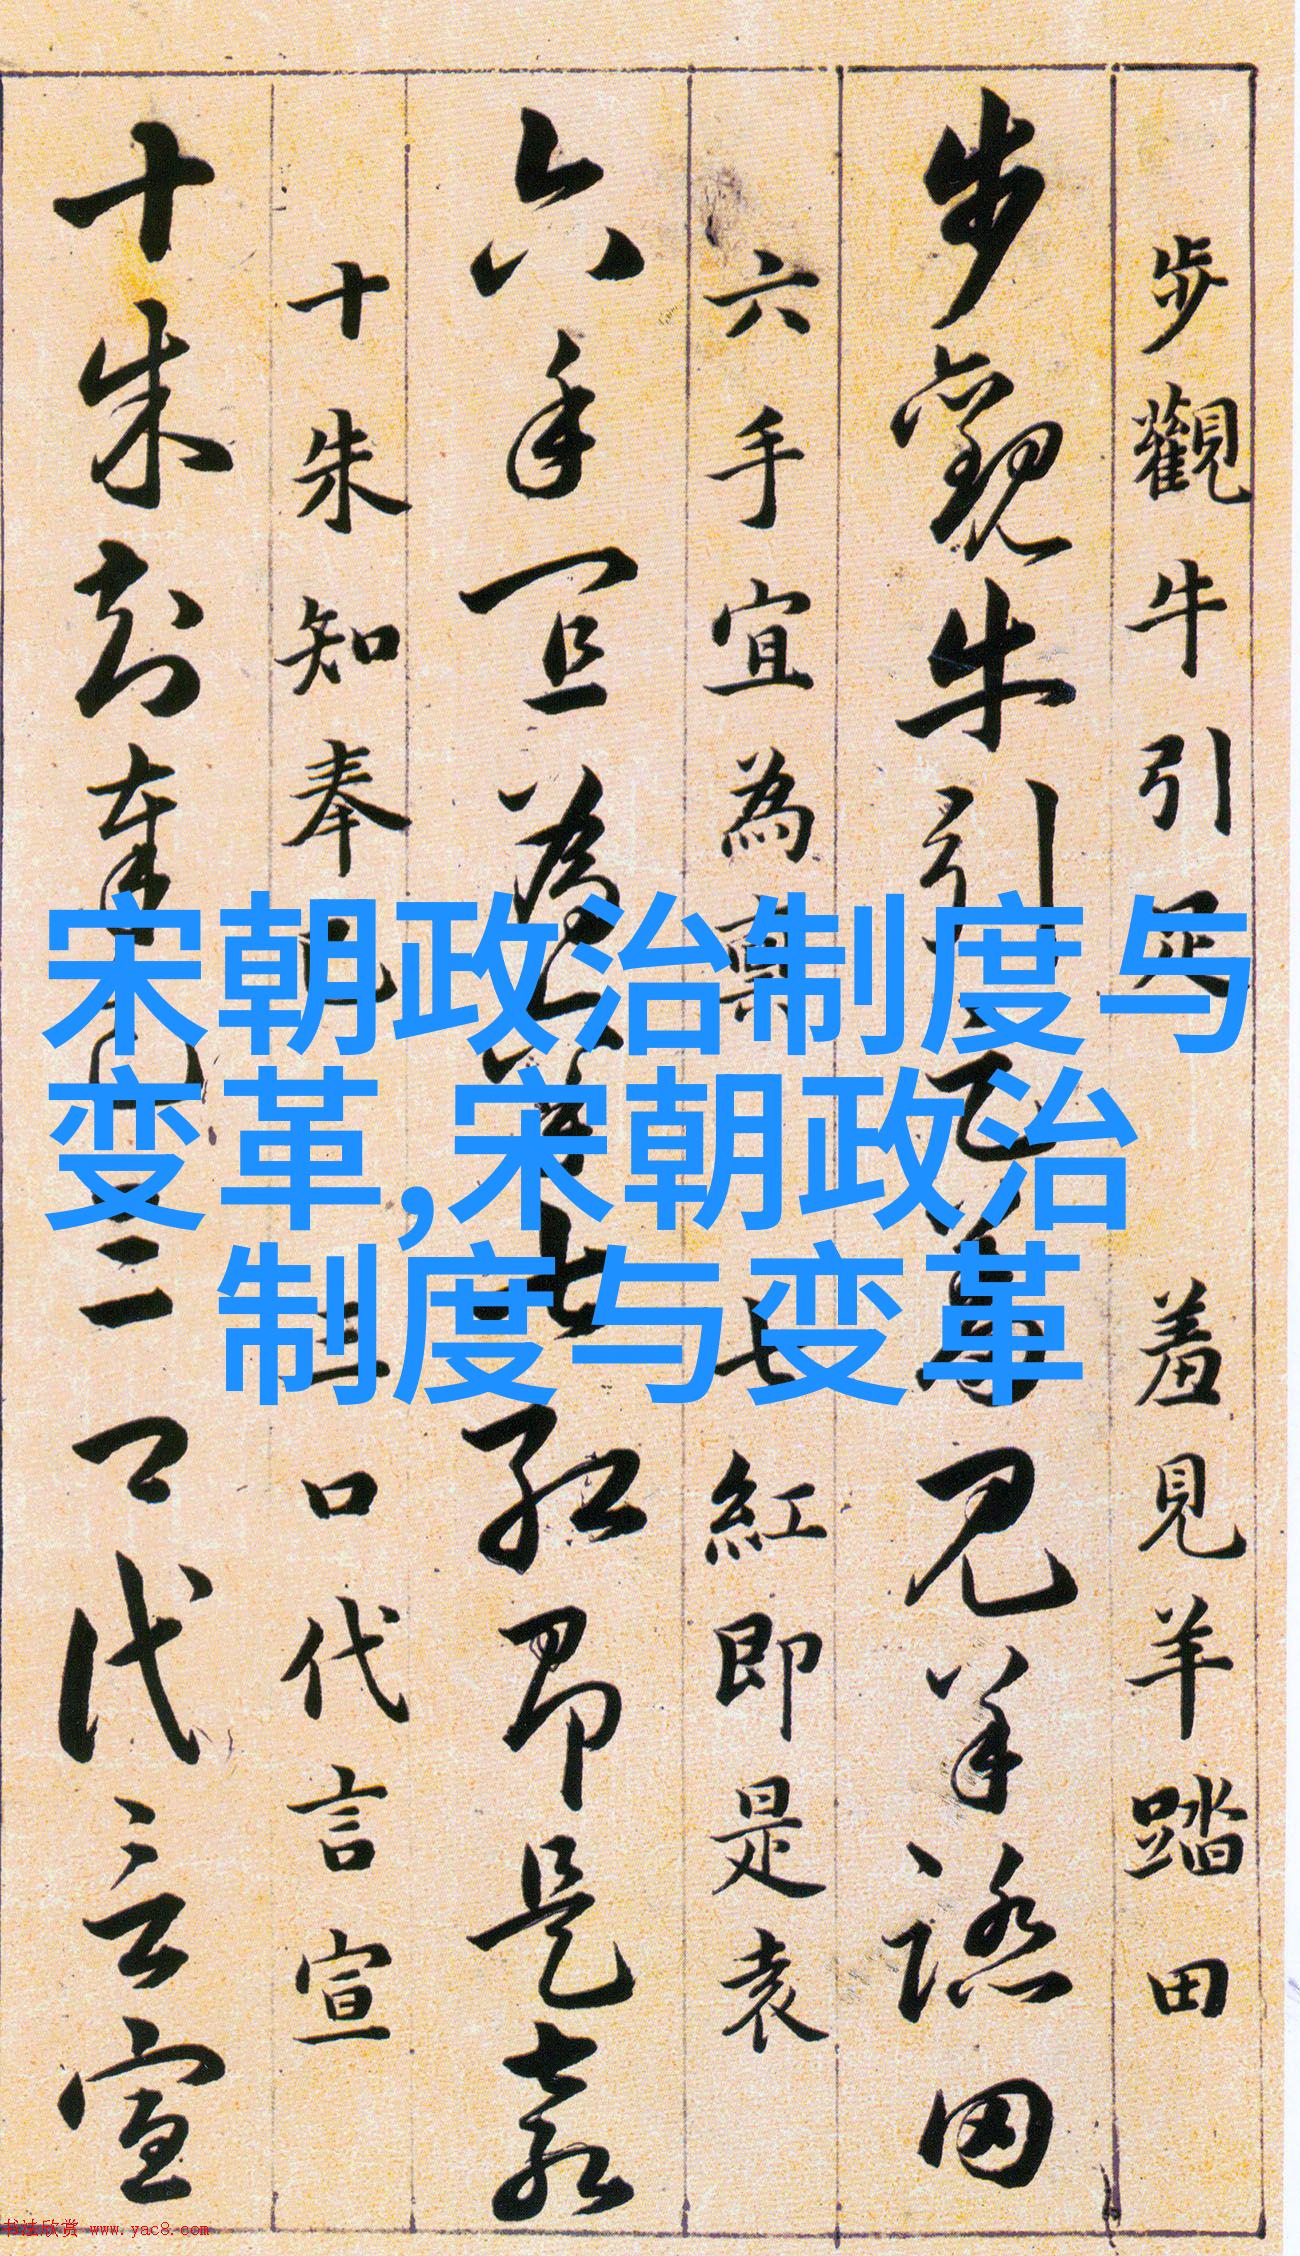 步觀牛引
羞見羊踏田
步觀牛引
見羊踏田
六手宜為
七紅即是袁
六手宜為
七紅即是袁
十朱知奉
三口代言宣
十朱知奉
三口代言宣
宋朝政治制度与
变革,宋朝政治
制度与变革
书法欣赏 www.yac8.com